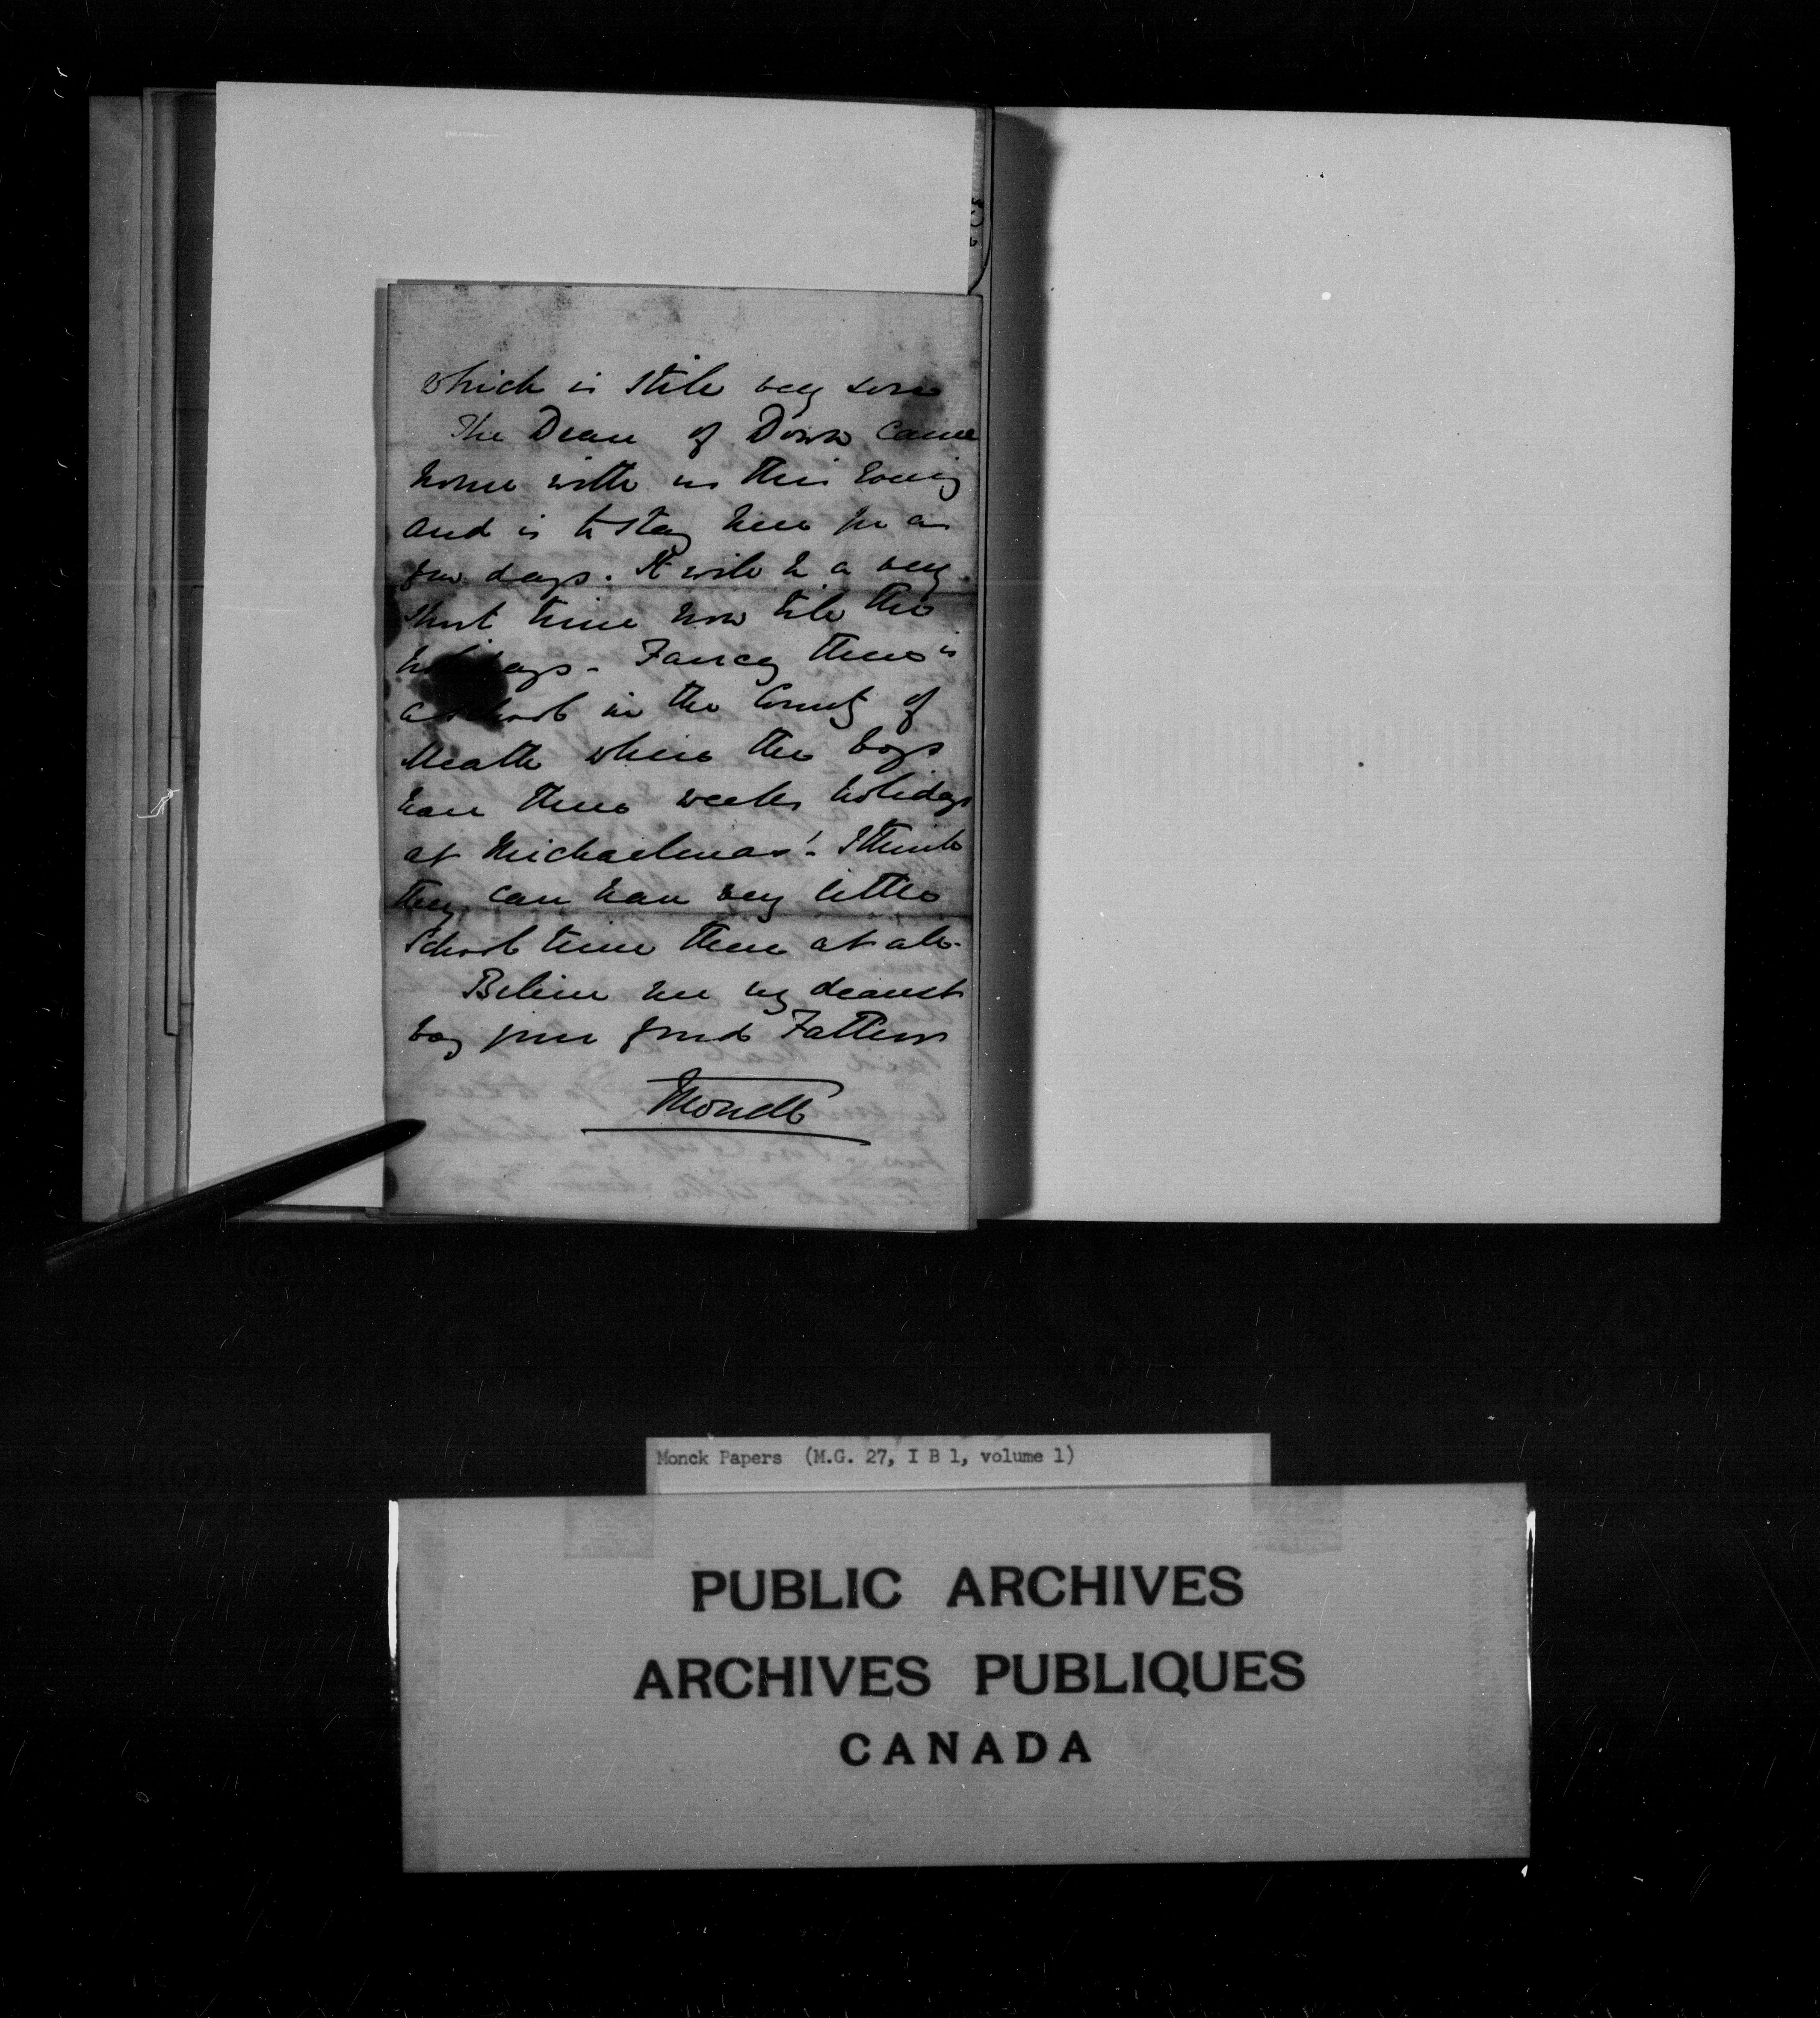 which is still very sore
The Dean of Down came
home with us this Evening
and is to stay here for a
few days. It will be a very
short time now till the
holidays - Fancy there is
a school in the County of
Meath where the boys
have three weeks holidays
at Michaelmas! - I think
they can have very little
School time there at all.
Believe me my dearest
boy your fond Father
Monck
Monck Papers (M.G. 27, I B 1, volume 1)
PUBLIC ARCHIVES
ARCHIVES PUBLIQUES
CANADA